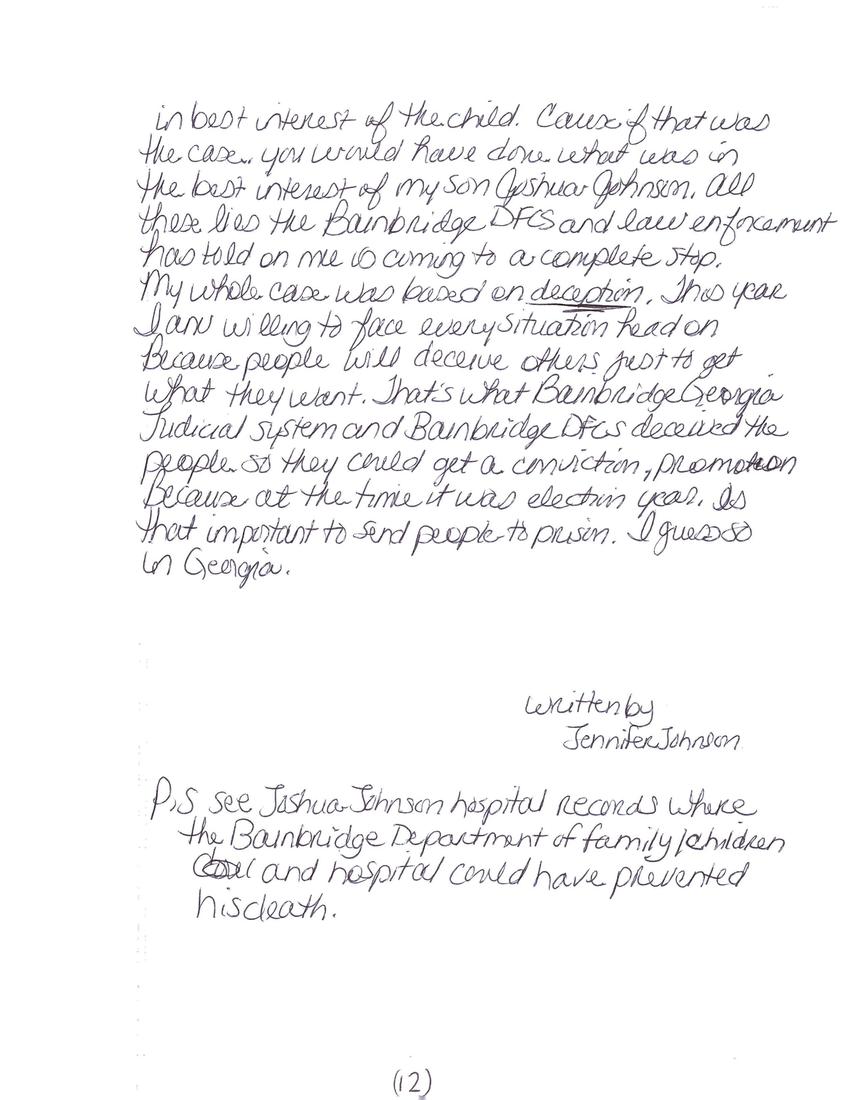 in best interest of the child. Cause if that was
the case.. you would have done what was in
the best interest of my son Joshua Johnson. All
these lies the Bainbridge DFCS and law enforcement
has told on me is coming to a complete stop.
My whole case was based on deception. This year
I am willing to face every situation head on
Because people will deceive others just to get
what they want. That's what Bainbridge Georgia
Judicial system and Bainbridge DFCS deceived the
people so they could get a conviction, promotion
Because at the time it was election year. Is
that important to send people to prison. I guess so
in Georgia.
written by
Jennifer Johnson
P.S see Joshua Johnson hospital records where
the Bainbridge Department of family/children
and hospital could have prevented
his death.
(12)